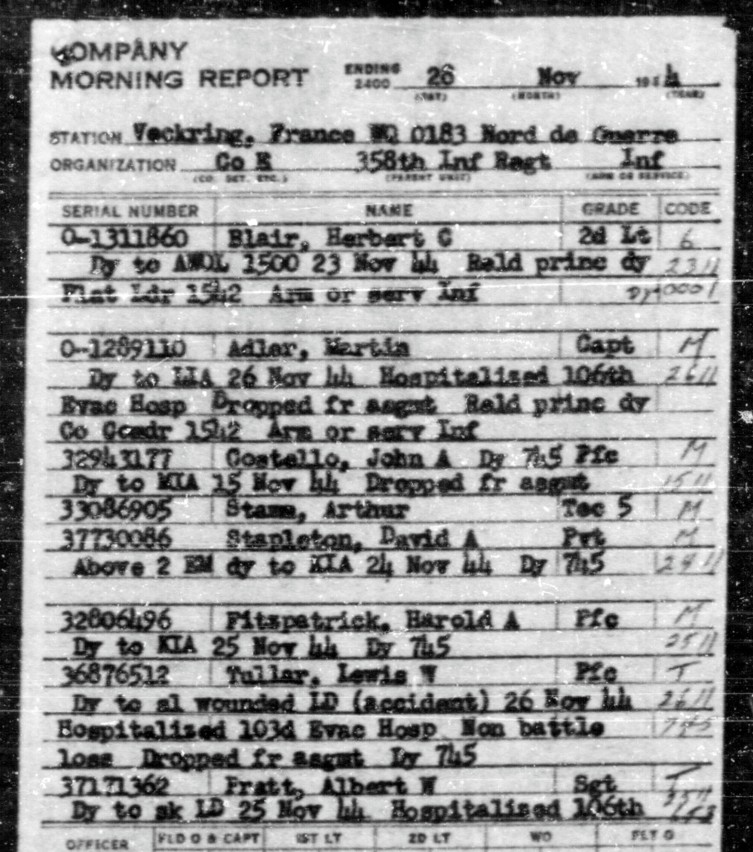 COMPANY
MORNING REPORT ENDING 2400 26 Nov 194 4
(DAY) (MONTH) (YEAR)
STATION Veckring, France WQ 0183 Nord de Guerre
ORGANIZATION Co E 358th Inf Regt Inf
(CO. DET. ETC.) (PARENT UNIT) (ARM OR SERVICE)
SERIAL NUMBER NAME GRADE CODE
O-1311860 Blair, Herbert G 2d Lt 6
Dy to AWOL 1500 23 Nov 44 Reld princ dy 2311
Plat Ldr 1542 Arm or serv Inf
O-1289110 Adler, Martin Capt M
Dy to LIA 26 Nov 44 Hospitalized 106th 2611
Evac Hosp Dropped fr asgmt Reld princ dy
Co Comdr 1542 Arm or serv Inf
32943177 Costello, John A Dy 745 Pfc M
Dy to MIA 15 Nov 44 Dropped fr asgmt 1511
33086905 Stamm, Arthur Tec 5 M
37730086 Stapleton, David A Pvt M
Above 2 EM dy to KIA 24 Nov 44 Dy 745 2411
32806496 Fitzpatrick, Harold A Pfc M
Dy to KIA 25 Nov 44 Dy 745 2511
36876512 Tullar, Lewis W Pfc T
Dy to sl wounded LD (accident) 26 Nov 44 2611
Hospitalized 103d Evac Hosp Non battle 745
loss Dropped fr asgmt Dy 745
37171362 Pratt, Albert W Sgt T
Dy to sk LD 25 Nov 44 Hospitalized 106th
OFFICER FLD O & CAPT 1ST LT 2D LT WO FLT O